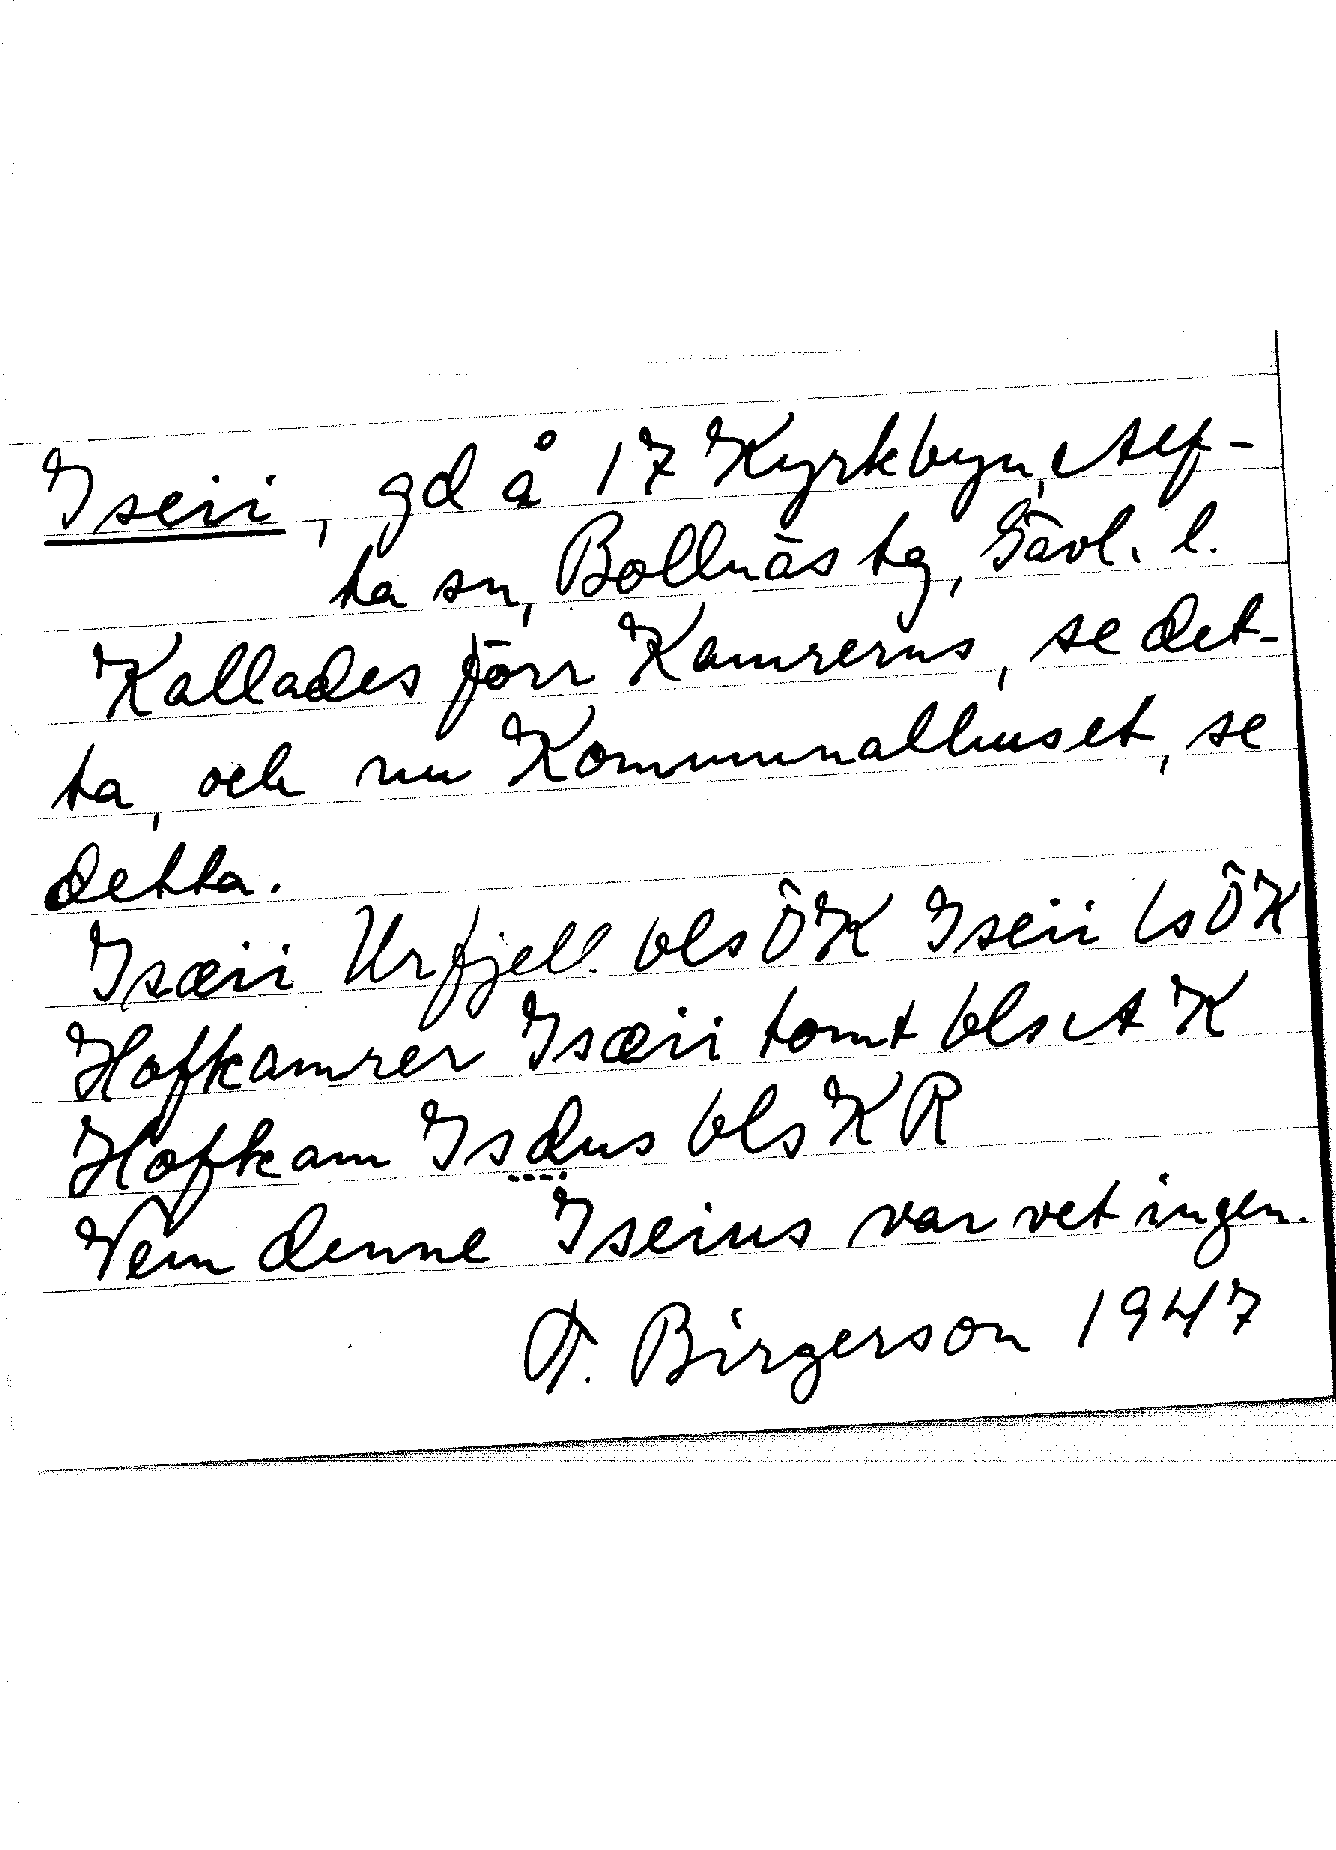 Iseii, gd å 17 Kyrkbyn, Alf-
ta sn, Bollnäs tg, Gävl. l.
Kallades förr Kamrerns, se det-
ta, och nu Kommunalhuset, se
detta.
Isæii Urfjell. bls ÖK Iseii ls ÖK
Hofkamrer Isæii tomt bls A K
Hofkam Isdus bls K R
Vem denne Iseius var vet ingen.
F. Birgerson 1947